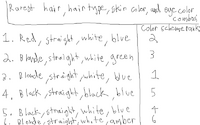 Rarest hair, hair type, skin color, and eye color
combos
Color scheme rank
1. Red, straight, white, blue 2
2. Blonde, straight, white, green 3
3. Blonde, straight, white, blue 1
4. Black, straight, black, blue 5
5. Black, straight, white, blue 4
6. Blonde, straight, white, amber 6